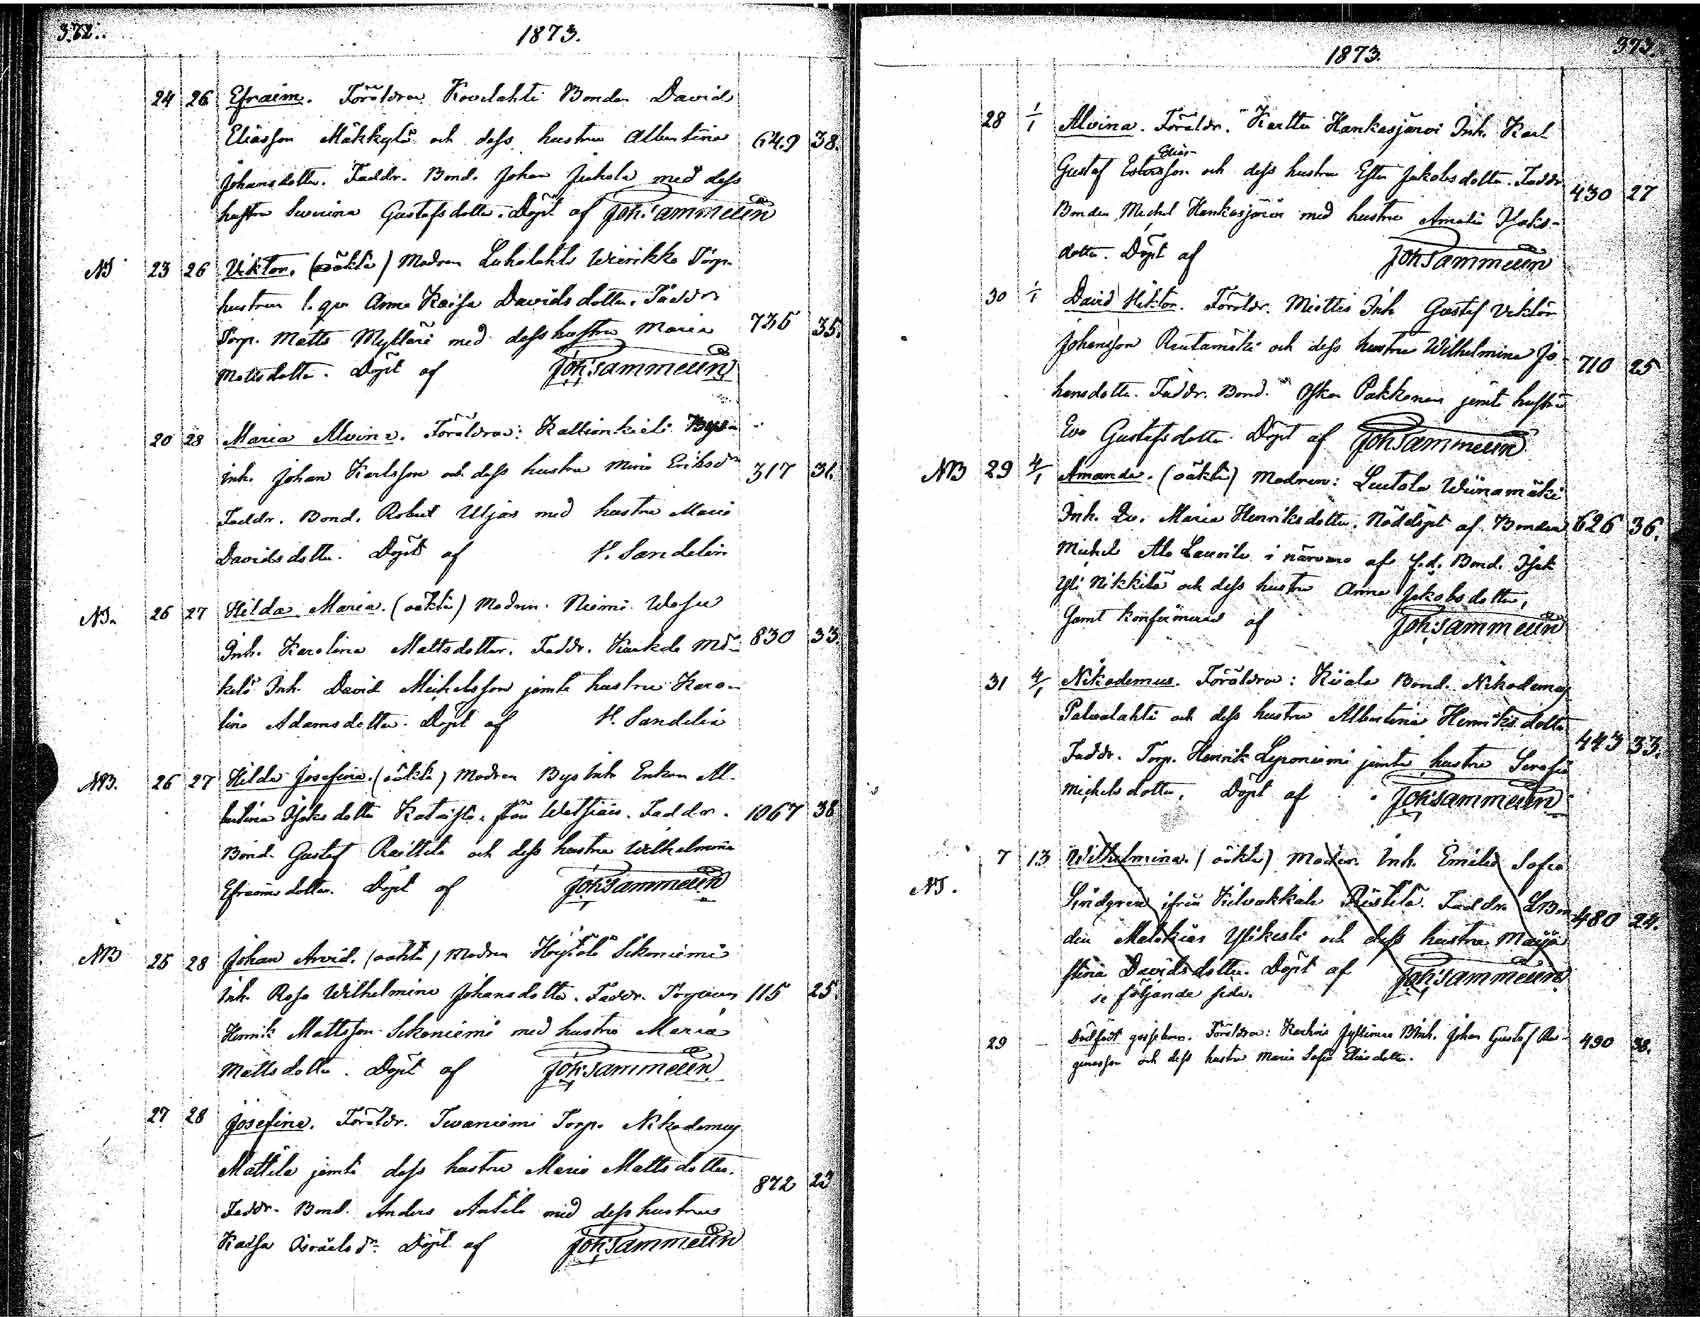 372.
1873.
24 26 Efraim. Föräldrar Kovelahti Bonden David
Eliasson Mäkkylä och dess hustru Albertina 649 38.
Johansdotter. Faddr. Bond. Johan Jukola med dess
hustru Serviina Gustafsdotter. Döpt af Joh: Sammelin
NB 23 26 Viktor. (oäkta) Modren Luhalahti Wiirikko Torp.
hustrun l. qv. Anna Kaisa Davidsdotter. Faddr
Torp. Matts Myllari med dess hustru Maria 735 35.
Matsdotter. Döpt af Joh: Sammelin
20 28 Maria Alvina. Föräldrar: Kallionkieli Bys
inh. Johan Karlsson och dess hustru Maria Eriksdr 317 31.
Faddr. Bond. Robert Uljas med hustru Maria
Davidsdotter. Döpt af K. Sandelin
NB. 26 27 Hilda Maria. (oäkta) Modren. Niemi
Inh. Karolina Mattsdotter. Faddr. 830 33
Inh. David Michelsson jemte hustru Karo-
lina Adamsdotter. Döpt af K. Sandelin
NB. 26 27 Hilda Josefina. (oäkta) Modren Bys Inh. Enkan Al-
bertina Isaksdotter från Faddr. 1067 38
Bond. Gustaf Raittila och dess hustru Wilhelmina
Efraimsdotter. Döpt af Joh: Sammelin
NB 25 28 Johan Arvid. (oäkta) Modren Höytölä Sikoniemi
Inh. Rosa Wilhelmina Johansdotter. Faddr. Torparen 115 25.
Henrik Mattsson Sikoniemi med hustru Maria
Mattsdotter. Döpt af Joh: Sammelin
27 28 Josefina. Föräldr. Iivaniemi Torp. Nikodemus
Mattila jemte dess hustru Maria Mattsdotter.
Faddr. Bond. Anders Anttila med dess hustru 872 23
Kaisa Israelsdr. Döpt af Joh: Sammelin
373.
1873.
28 1/1 Alvina. Föräldr. Karttu Hankasjärvi Inh. Karl
Elias-
Gustaf son och dess hustru Ester Jakobsdotter. Faddr 430 27
Bonden Michel Hankasjärvi med hustru Amalia Isaks-
dotter. Döpt af Joh: Sammelin
30 1/1 David Viktor. Föräldr. Miettis Inh. Gustaf Viktor
Johansson Rautamäki och dess hustru Wilhelmina Jo- 710 25
hansdotter. Faddr. Bond. Oskar Pakkanen jemte hustru
Eva Gustafsdotter. Döpt af Joh: Sammelin
NB 29 4/1 Amanda. (oäkta) Modren: Luutola Wiinamäki
Inh. Qv. Maria Henriksdotter. Nöddöpt af Bonden 626 36.
Michel Ala Laurila i närvaro af f.d. Bond. Isak
Yli Nikkilä och dess hustru Anna Jakobsdotter,
samt konfirmerad af Joh: Sammelin
31 4/1 Nikodemus. Föräldrar: Kiiala Bond. Nikodemus
Palvalahti och dess hustru Albertina Henriksdotter 443 33.
Faddr. Torp. Henrik Leponiemi jemte hustru Serafia
Michelsdotter. Döpt af Joh: Sammelin
NB. 7 13 Wilhelmina. (oäkta) Modren. Inh. Emilia Sofia
Lindgren ifrån Kilvakkala Ristila. Faddr. LBon- 480 24.
den Malakias Ylikesti och dess hustru Maija
Stina Davidsdotter. Döpt af Joh: Sammelin
se följande sida.
29 Dödfödt gossebarn. Föräldrar: Karhois Inh. Johan Gustaf 490 38.
och dess hustru Maria Sofia Eliasdotter.